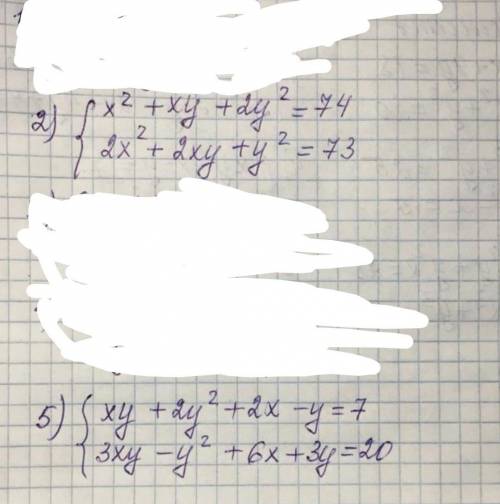 2) { x² + xy + 2y² = 74
2x² + 2xy + y² = 73
5) { xy + 2y² + 2x - y = 7
3xy - y² + 6x + 3y = 20